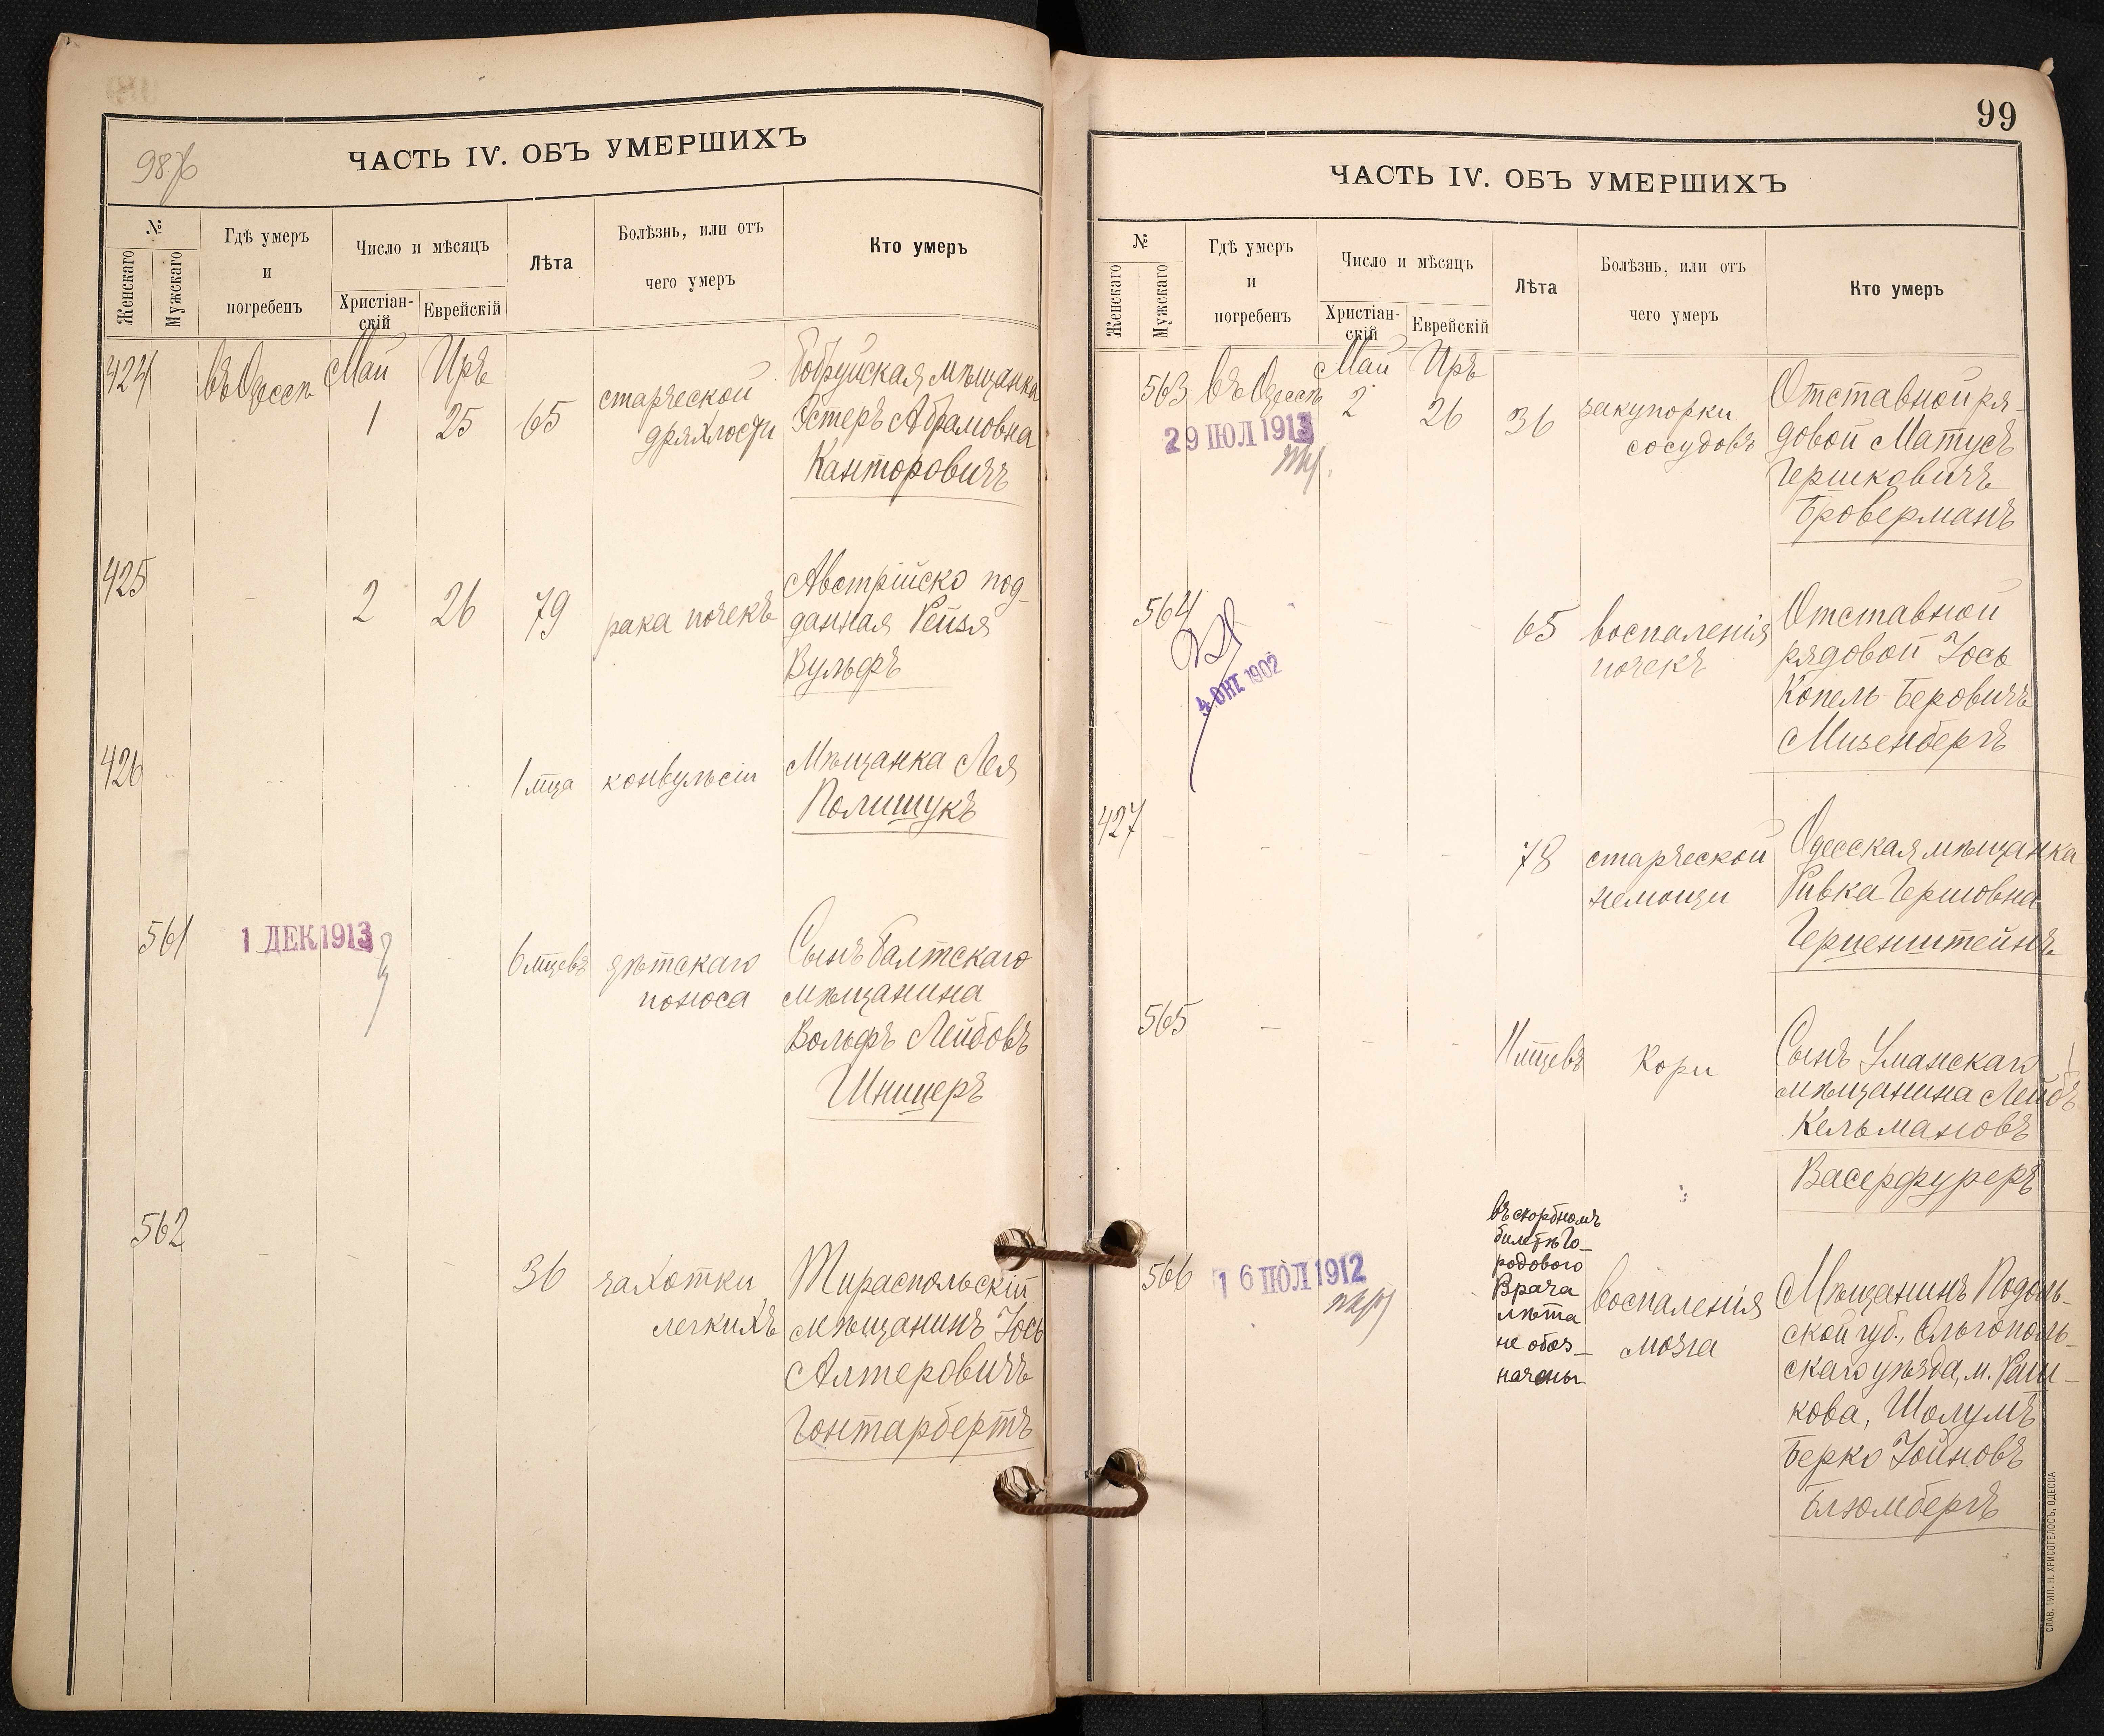 ЧАСТЬ IV. ОБЪ УМЕРШИХЪ
№
Женскаго
Мужскаго
Гдѣ умеръ
и
погребенъ
Число и мѣсяцъ
Христіан-
скій
Еврейскій
Лѣта
Болѣзнь, или отъ
чего умеръ
Кто умеръ
424
въ Одессѣ
Май
1
Иръ
25
65
старческой
дряхлости
Бобруйская мѣщанка
Эстеръ Абрамовна
Канторовичъ
425
-
2
26
79
рака почекъ
Австрійско под-
данная Рейзя
Вульфъ
426
-
-
1 мца
конвульсіи
Мѣщанка Лея
Полищукъ
561
1 ДЕК 1913
6 мцевъ
дѣтскаго
поноса
Сынъ Балтскаго
мѣщанина
Вольфъ Лейбовъ
Шницеръ
562
-
-
-
36
чахотки
легкихъ
Тираспольскій
мѣщанинъ Іось
Алтеровичъ
Гонтарбертъ
99
ЧАСТЬ IV. ОБЪ УМЕРШИХЪ
№
Женскаго
Мужскаго
Гдѣ умеръ
и
погребенъ
Число и мѣсяцъ
Христіан-
скій
Еврейскій
Лѣта
Болѣзнь, или отъ
чего умеръ
Кто умеръ
563
въ Одессѣ
29 ІЮЛ 1913
Май
2
Иръ
26
36
закупорки
сосудовъ
Отставной ря-
довой Матусъ
Гершковичъ
Броверманъ
564
4 ОКТ 1902
-
-
65
воспаленія
почекъ
Отставной
рядовой Іось
Копель Беровичъ
Мизенбергъ
427
-
-
-
78
старческой
немощи
Одесская мѣщанка
Ривка Гершовна
Герценштейнъ
565
-
-
-
11 мцевъ
Кори
Сынъ Уманскаго
мѣщанина Лейбъ
Кельмановъ
Васерфуреръ
566
16 ІЮЛ 1912
въ скорбномъ
билетѣ Го-
родового
Врача
лѣта
не обоз-
начены
воспаленія
мозга
Мѣщанинъ Подоль-
ской губ., Ольгополь-
скаго уѣзда, м. Раш-
кова, Шолумъ
Берко Іойновъ
Блюмбергъ
СЛАВ. ТИП. Н. ХРИСОГЕЛОСЪ, ОДЕССА